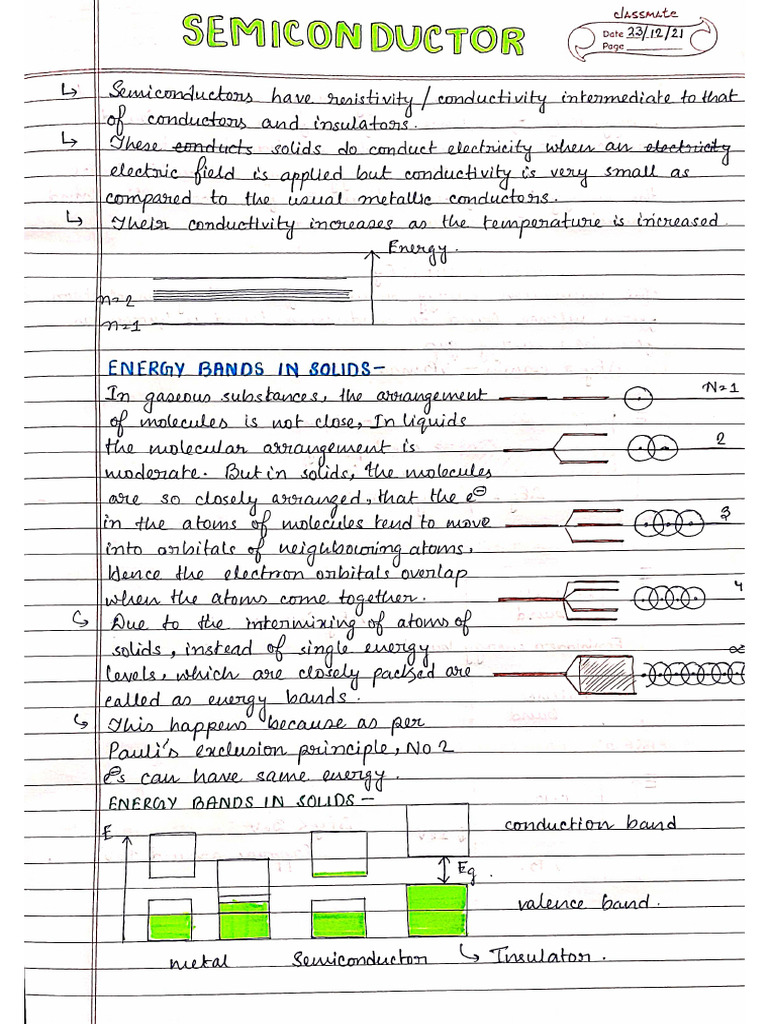 SEMICONDUCTOR
classmate
Date 23/12/21
Page
↳ Semiconductors have resistivity / conductivity intermediate to that
of conductors and insulators.
↳ These conducts solids do conduct electricity when an electricity
electric field is applied but conductivity is very small as
compared to the usual metallic conductors.
↳ Their conductivity increases as the temperature is increased
Energy.
n=2
n=1
ENERGY BANDS IN SOLIDS-
In gaseous substances, the arrangement
N=1
of molecules is not close, In liquids
the molecular arrangement is
2
moderate. But in solids, the molecules
are so closely arranged, that the e⊖
in the atoms of molecules tend to move
3
into orbitals of neighbouring atoms.
Hence the electron orbitals overlap
when the atoms come together.
4
↳ Due to the intermixing of atoms of
solids, instead of single energy
levels, which are closely packed are
∞
called as energy bands.
↳ This happens because as per
Pauli's exclusion principle, No 2
e⊖s can have same energy.
ENERGY BANDS IN SOLIDS-
E
conduction band
Eg.
valence band.
metal
Semiconductor
↳ Insulator.